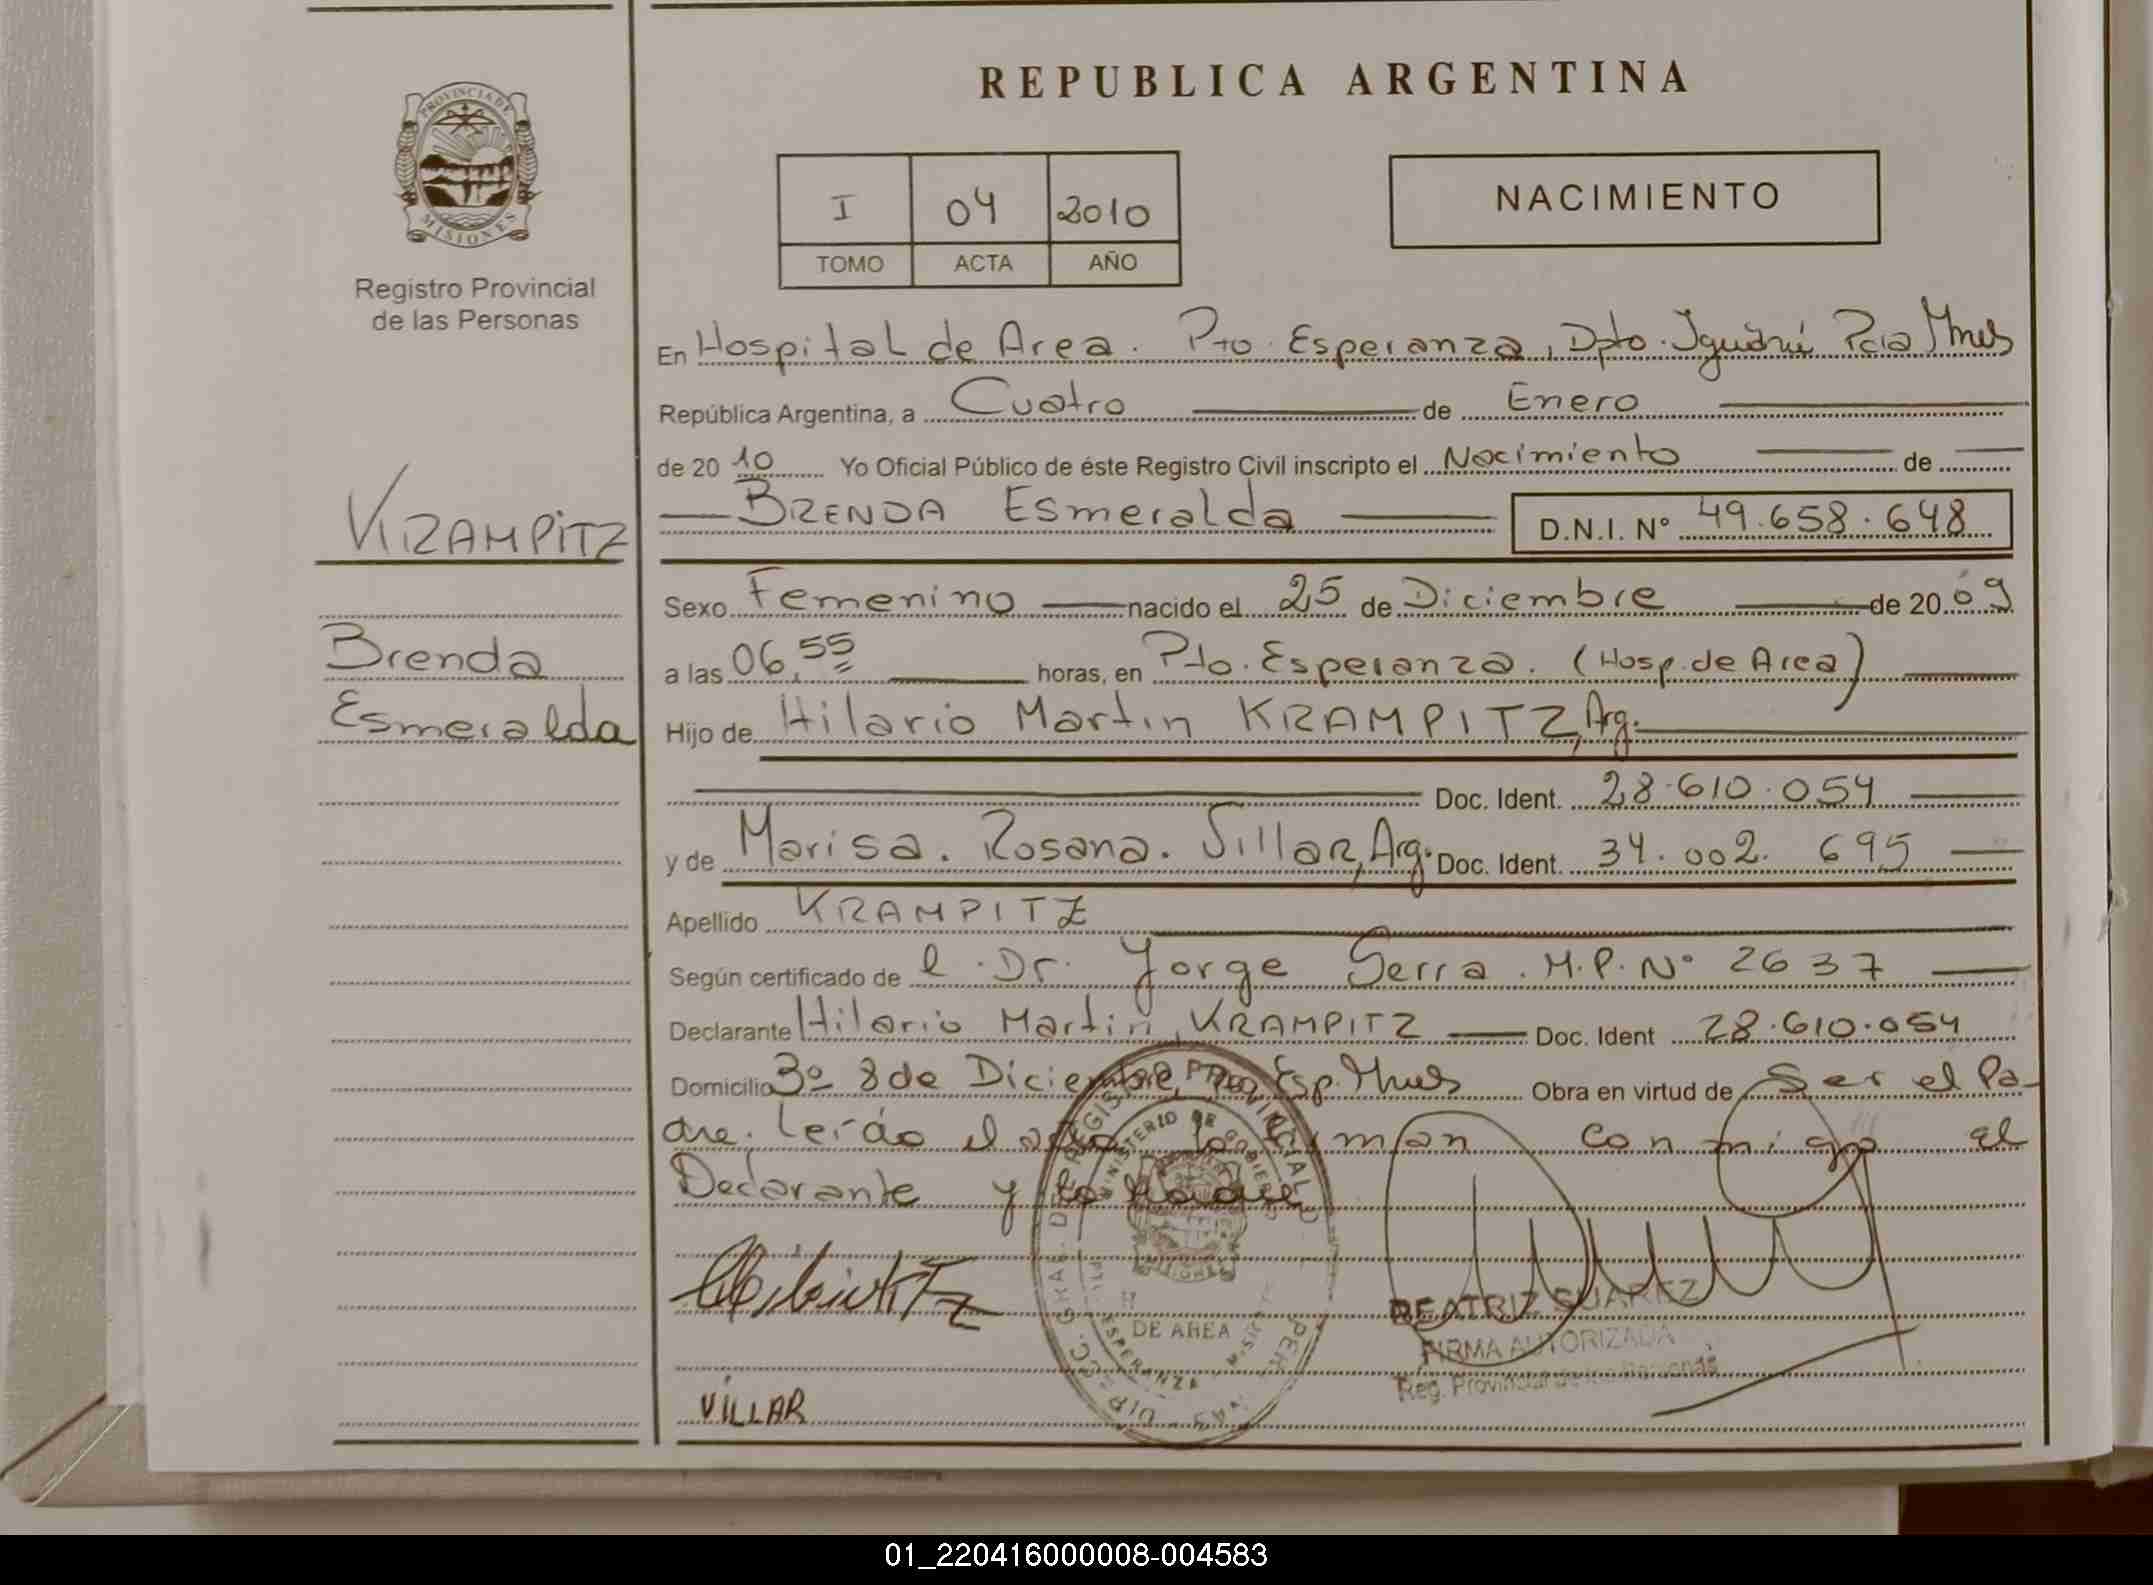 REPUBLICA ARGENTINA
PROVINCIA DE
MISIONES
Registro Provincial
de las Personas
I 04 2010
TOMO ACTA AÑO
NACIMIENTO
KRAMPITZ
Brenda
Esmeralda
En Hospital de Area. Pto. Esperanza, Dpto. Iguazú Pcia Mnes
República Argentina, a Cuatro de Enero
de 2010 Yo Oficial Público de éste Registro Civil inscripto el Nacimiento de
BRENDA Esmeralda D.N.I. N° 49.658.648
Sexo Femenino nacido el 25 de Diciembre de 2009
a las 06,55 horas, en Pto. Esperanza. (Hosp. de Area)
Hijo de Hilario Martin KRAMPITZ, Arg.
Doc. Ident. 28.610.054
y de Marisa. Rosana. Villar, Arg. Doc. Ident. 34.002.695
Apellido KRAMPITZ
Según certificado de l. Dr. Jorge Serra. M.P. N° 2637
Declarante Hilario Martin, KRAMPITZ Doc. Ident 28.610.054
Domicilio 3° 8 de Diciembre, Pto Esp. Mnes Obra en virtud de Ser el Pa-
dre. Leído el acta la firman conmigo el
Declarante y la Madre
MINISTERIO DE GOBIERNO
DE AREA
ESPERANZA
BEATRIZ SUAREZ
FIRMA AUTORIZADA
Reg. Provincial de las Personas
VILLAR
01_220416000008-004583